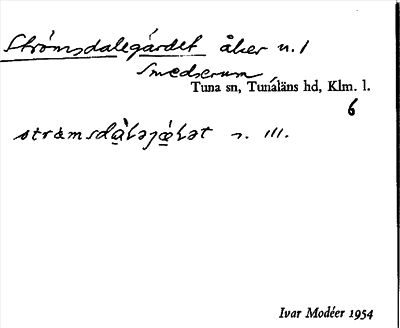 Strömsdalegärdet åker n. 1
Smedserum
Tuna sn, Tunaläns hd, Klm. l.
6
n. III.
Ivar Modéer 1954